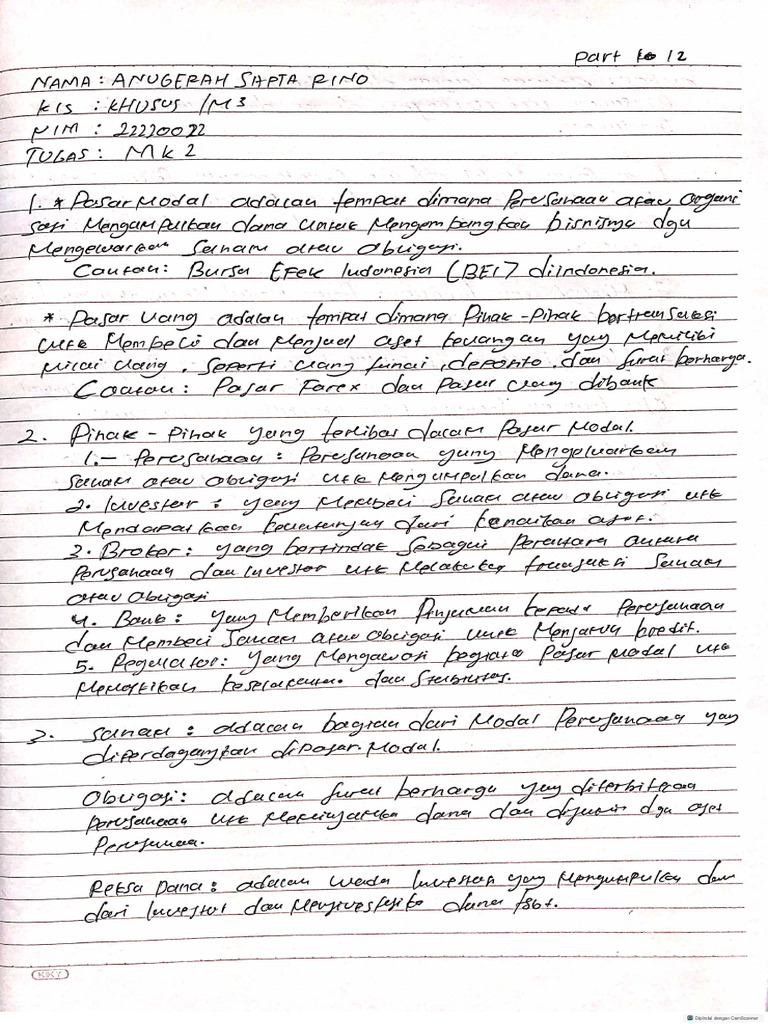 Part 12
NAMA : ANUGERAH SAPTA RINO
KLS : KHUSUS / M3
NIM : 22220022
TUGAS : MK 2
1. * Pasar Modal adalah tempat dimana Perusahaan atau organi
sasi Mengumpulkan dana untuk Mengembangkan bisnisnya dgn
Mengeluarkan Saham atau Obligasi.
Contoh : Bursa Efek Indonesia (BEI) diindonesia.
* Pasar Uang adalah tempat dimana Pihak - Pihak bertransaksi
utk Membeli dan Menjual aset keuangan yang Memiliki
nilai Uang, seperti uang tunai, deposito, dan surat berharga.
Contoh : Pasar Forex dan Pasar Uang dibank
2. Pihak - Pihak yang terlibat dalam Pasar Modal.
1. - Perusahaan : Perusahaan yang Mengeluarkan
Saham atau obligasi utk Mengumpulkan dana.
2. Investor : yang Membeli Saham atau obligasi utk
Mendapatkan keuntungan dari kenaikan aset.
3. Broker : yang bertindak sebagai Perantara antara
Perusahaan dan Investor utk Melakukan transaksi Saham
atau obligasi
4. Bank : yang Memberikan Pinjaman kepada Perusahaan
dan Membeli Saham atau obligasi untuk Menjamin kredit.
5. Regulator : yang Mengawasi kegiatan Pasar Modal utk
Memastikan dan Stabilitas.
3. Saham : adalah bagian dari Modal Perusahaan yang
diperdagangkan dipasar Modal.
Obligasi : adalah surat berharga yang diterbitkan
Perusahaan utk Meminjamkan dana dan dijamin dgn aset
Perusahaan.
Reksa Dana : adalah wada Investasi yang Mengumpulkan dana
dari Investor dan dana tsbt.
KKY
Dipindai dengan CamScanner